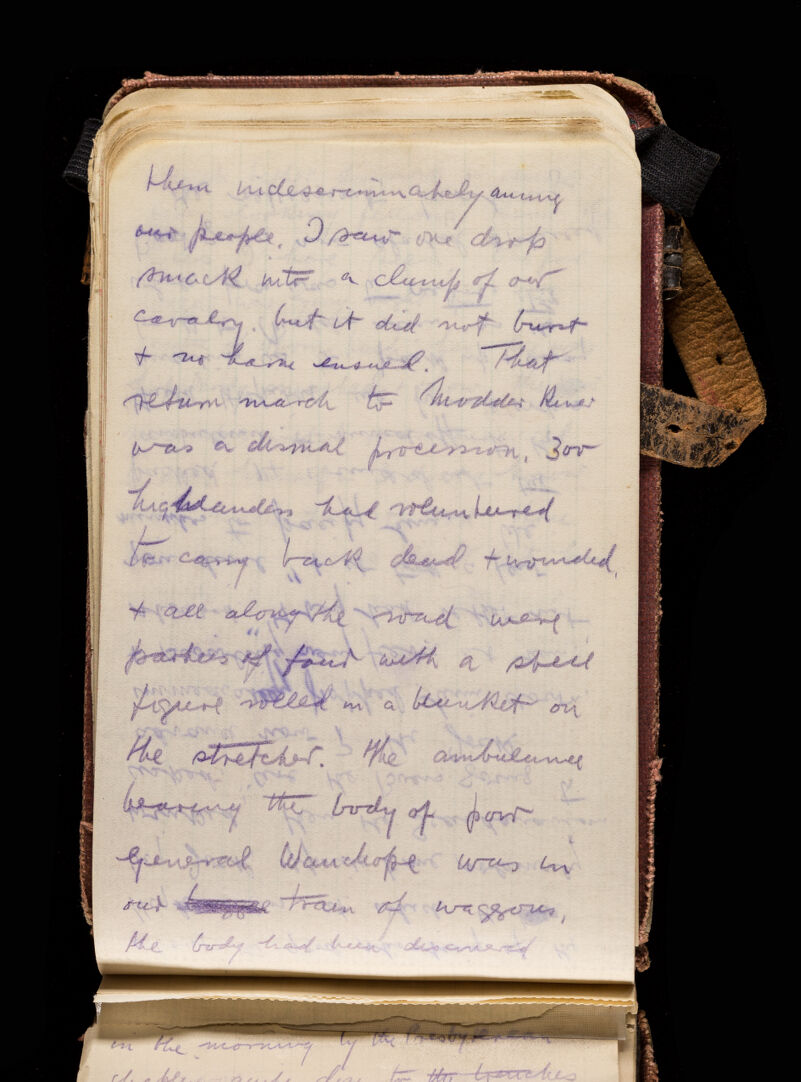 them indescriminately among
our people. I saw one drop
smack into a clump of our
cavalry. but it did not burst
+ no harm ensued. That
return march to Modder River
was a dismal procession. 300
highlanders had volunteered
to carry back dead + wounded,
+ all along the road were
parties of four with a still
figure rolled in a blanket on
the stretcher. The ambulance
bearing the body of poor
General Wauchope was in
our train of waggons,
the body had been discovered
in the morning by the Presbyterian
close to the trenches